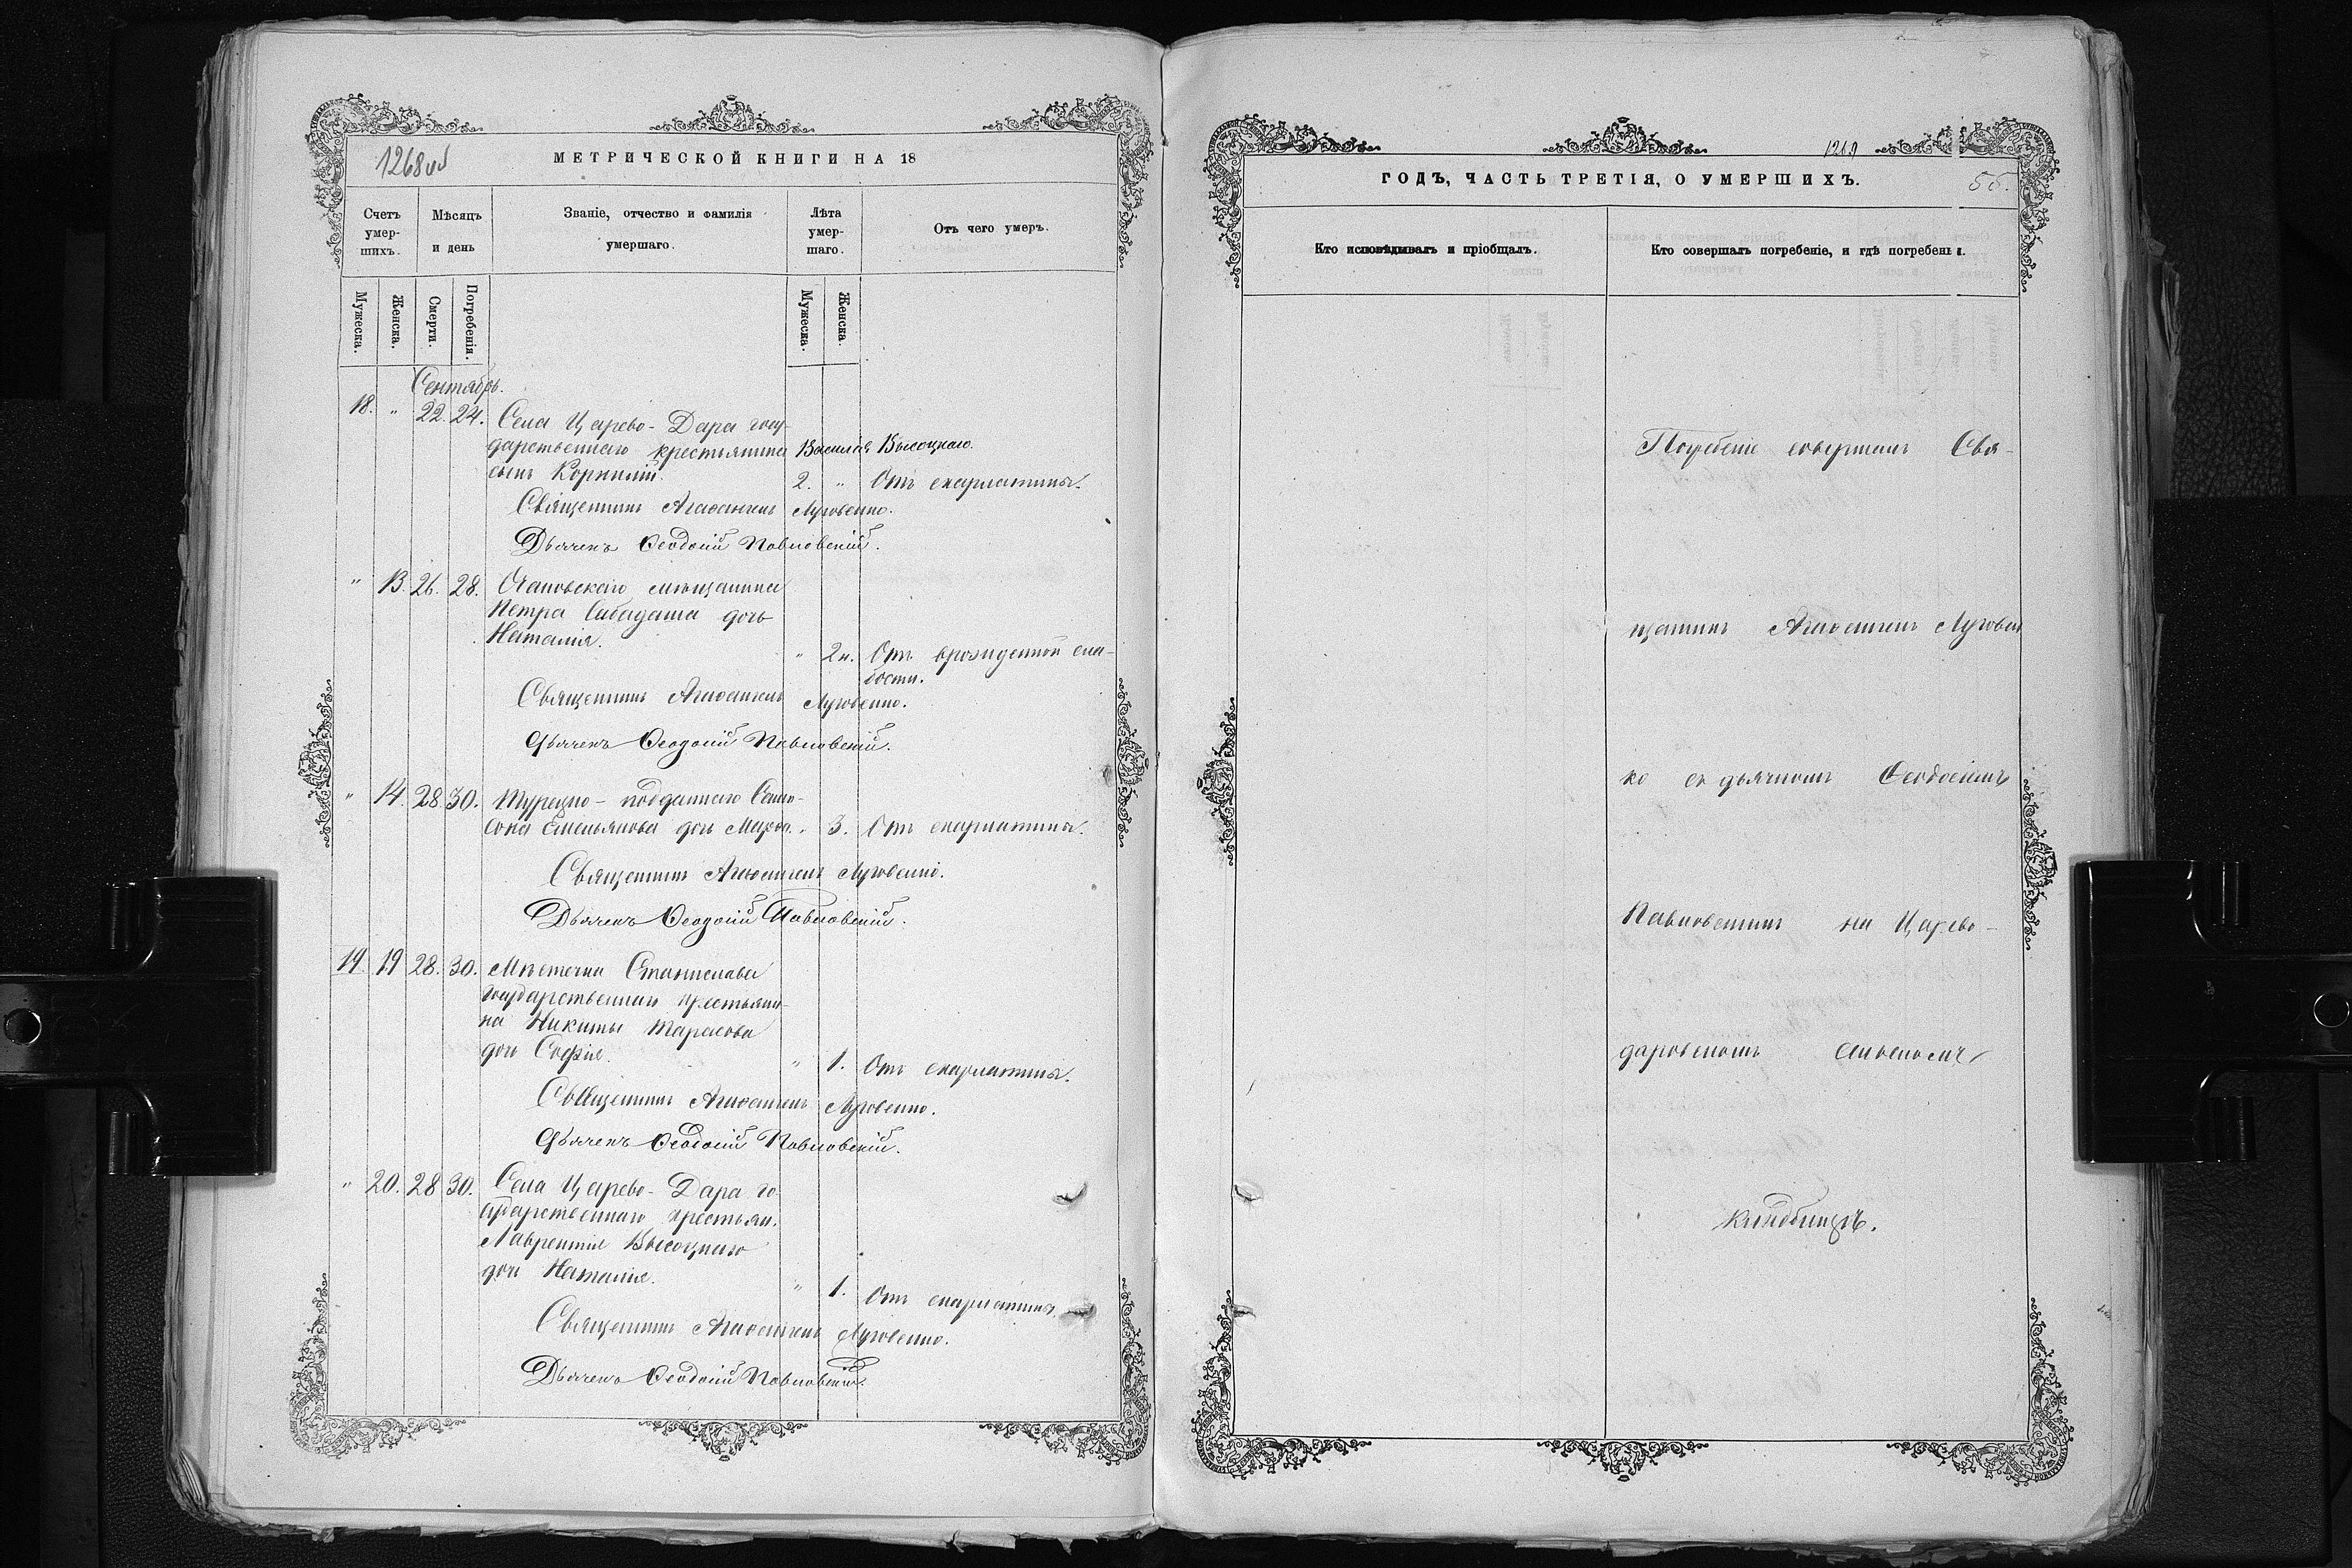 1268об
МЕТРИЧЕСКОЙ КНИГИ НА 18
Счетъ умер-шихъ.
Мѣсяцъ и день
Званіе, отчество и фамилія умершаго.
Лѣта умер-шаго.
Отъ чего умеръ.
Мужеска.
Женска.
Смерти.
Погребенія.
Мужеска.
Женска.
Сентябрь.
18. " 22. 24. Села Царево-Дара госу-
дарственнаго крестьянина Василія Высоцкаго
сынъ Корнилій. 2. " Отъ скарлатины.
Священникъ Агаѳангелъ Луговенко.
Дьячекъ Ѳеодосій Павловскій.
" 13. 26. 28. Очаковскаго мѣщанина
Петра Сабадаша дочь
Наталія.
" 2н. Отъ врожденной сла-
бости.
Священникъ Агаѳангелъ Луговенко.
Дьячекъ Ѳеодосій Павловскій.
" 14. 28. 30. Турецко-подданнаго
Емельянова дочь " 3. Отъ скарлатины.
Священникъ Агаѳангелъ Луговенко.
Дьячекъ Ѳеодосій Павловскій.
19. 19 28. 30. Мѣстечка Станислава
государственнаго крестьяни-
на Никиты Тарасова
дочь Софія. " 1. Отъ скарлатины.
Священникъ Агаѳангелъ Луговенко.
Дьячекъ Ѳеодосій Павловскій.
" 20. 28 30. Села Царево-Дара го-
сударственнаго крестьян.
Лаврентія Высоцкаго
дочь Наталія. " 1. Отъ скарлатины.
Священникъ Агаѳангелъ Луговенко.
Дьячекъ Ѳеодосій Павловскій.
1269
ГОДЪ, ЧАСТЬ ТРЕТІЯ, О УМЕРШИХЪ.
55.
Кто исповѣдывалъ и пріобщалъ.
Кто совершалъ погребеніе, и гдѣ погребены.
Погребеніе совершалъ Свя-
щенникъ Агаѳангелъ Луговен
ко съ дьячкомъ Ѳеодосіемъ
Павловскимъ на Царево-
даровскомъ сельскомъ
кладбищѣ.